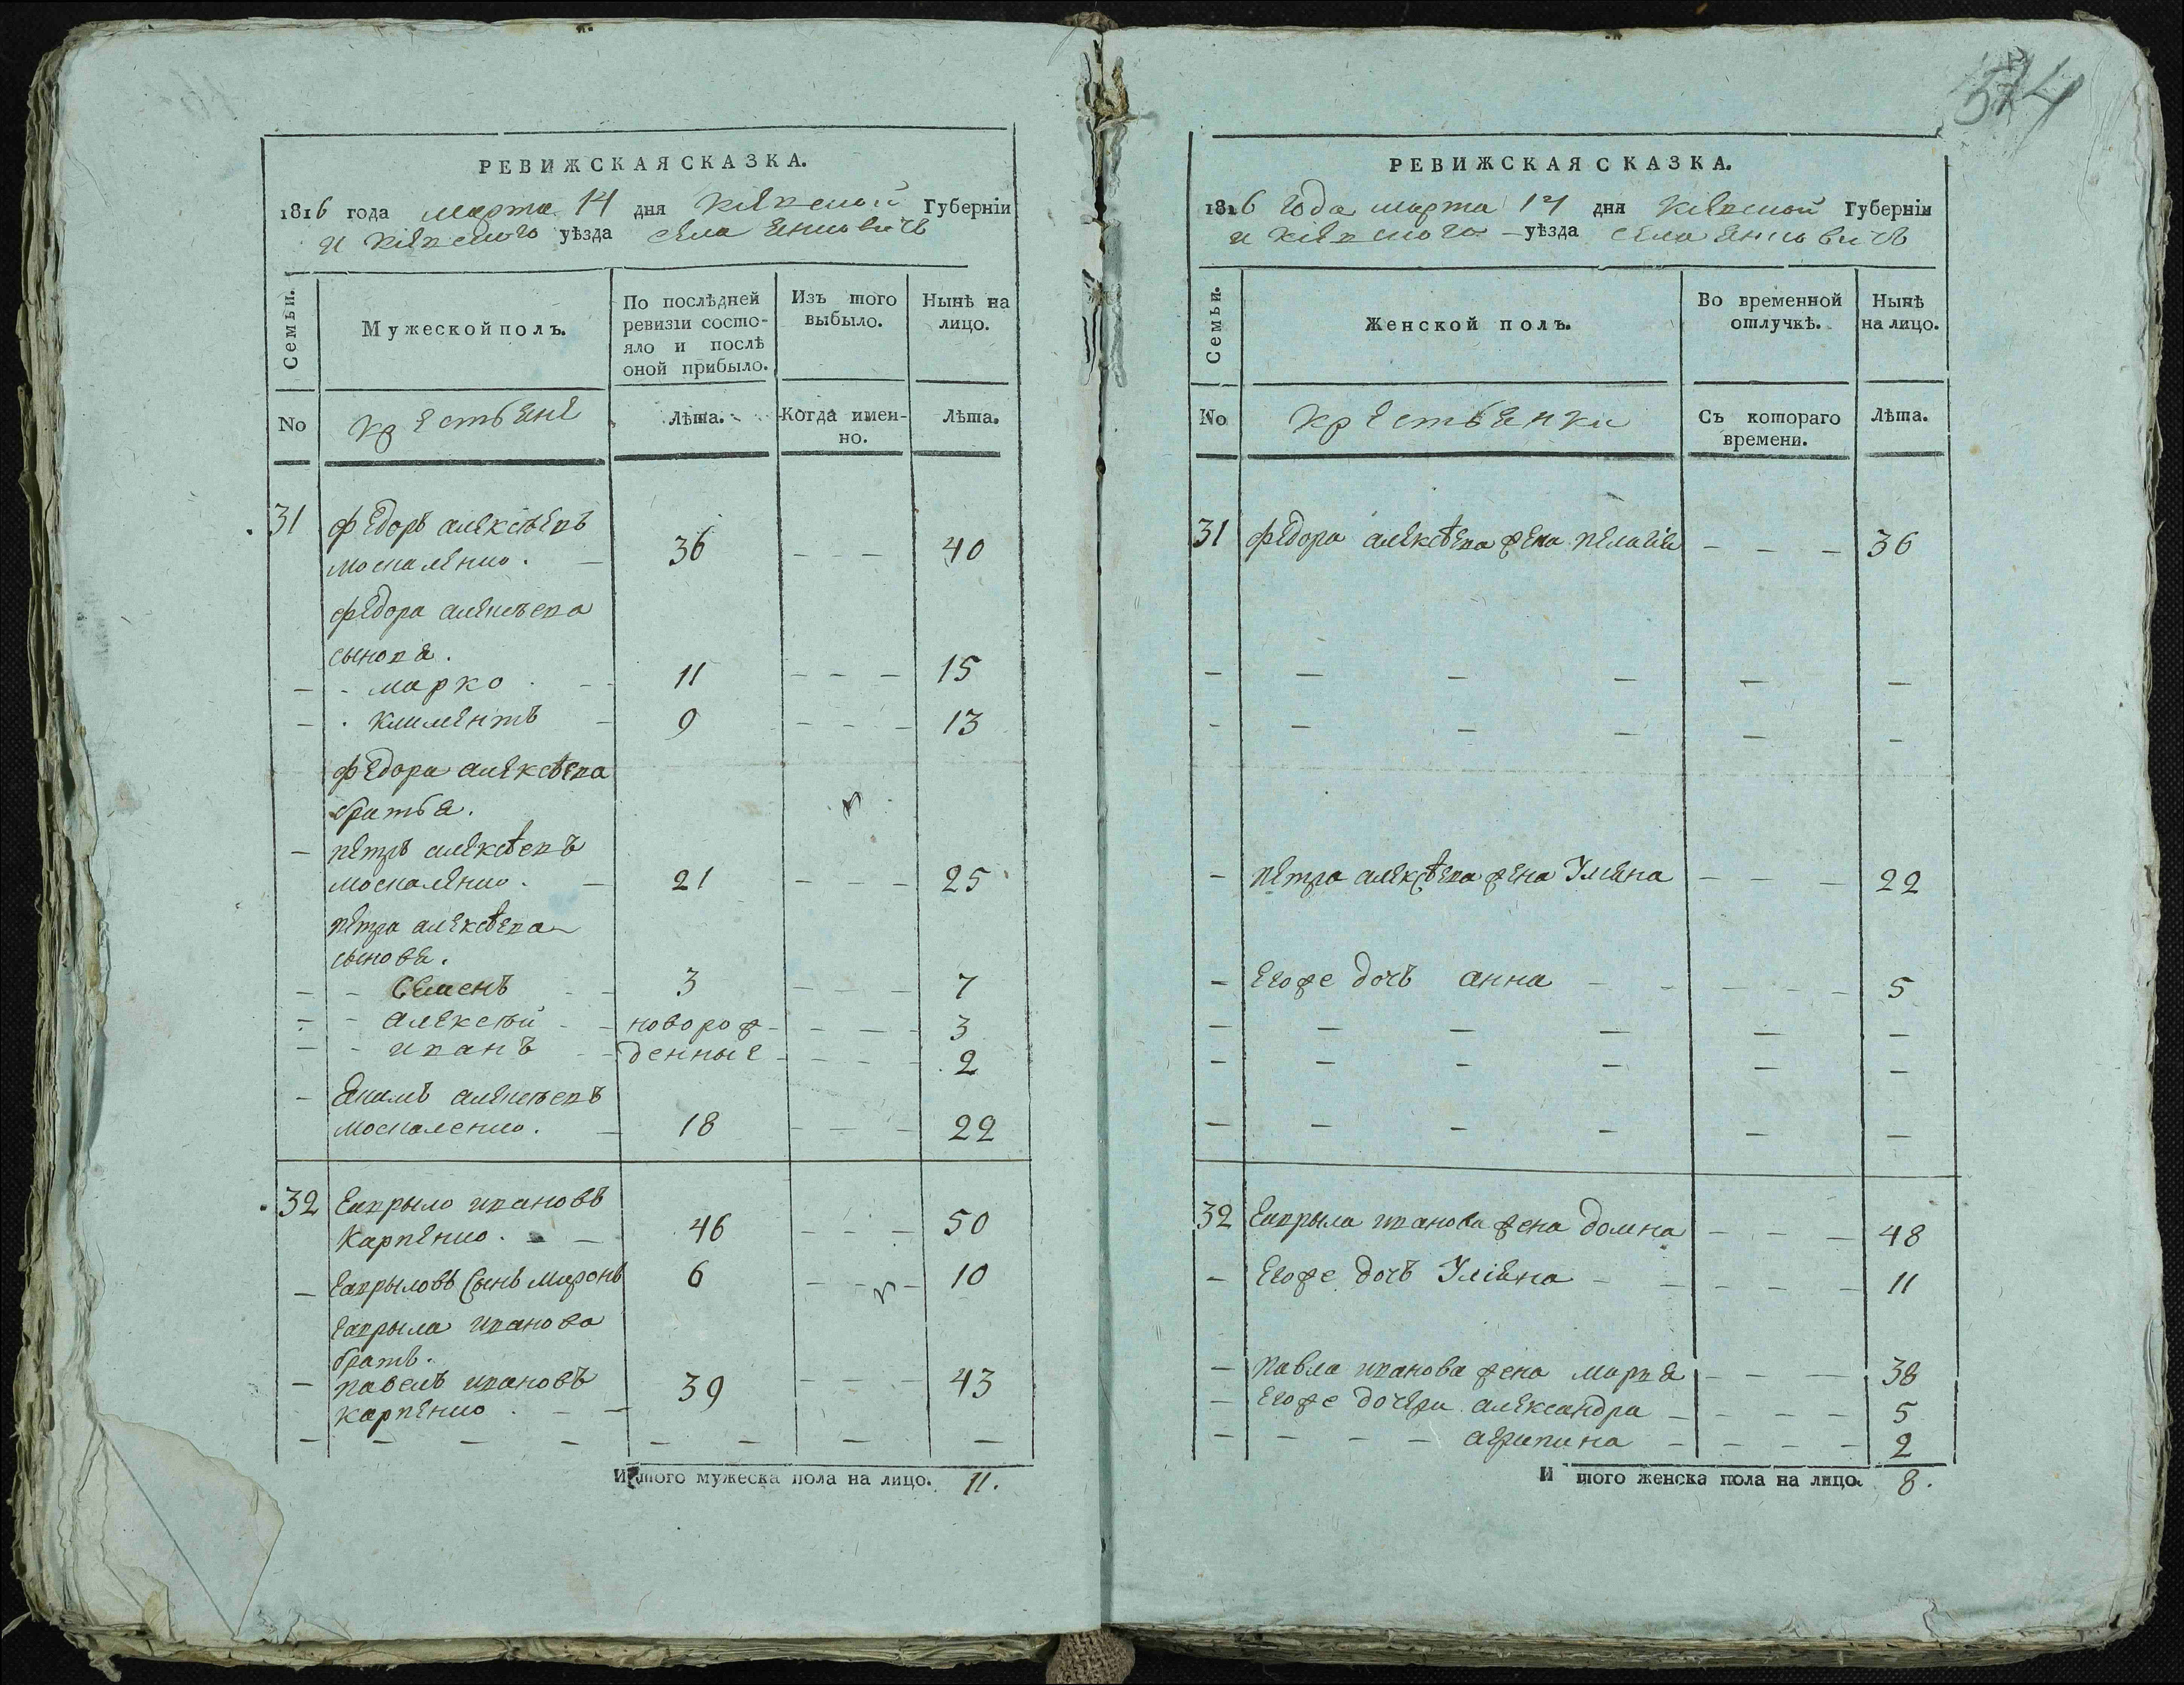 РЕВИЖСКАЯ СКАЗКА.
1816 года марта 14 дня Кіевской Губерніи
и Кіевского уѣзда села Янковичъ
Семьи.
Мужеской полъ.
По послѣдней ревизіи состо-
яло и послѣ
оной прибыло.
Изъ того
выбыло.
Нынѣ на
лицо.
No
крестьяне
Лѣта.
Когда имен-
но.
Лѣта.
31 Федоръ алексѣевъ
москаленко. — 36 — — — 40
федора алексѣева
сыновя.
— - марко - — 11 — — — 15
— - климентъ — 9 — — — 13
федора алексѣева
братья.
— петръ алексѣевъ
москаленко. — 21 — — — 25
петра алексѣева
сыновя.
— - Семенъ — 3 — — — 7
— - алексѣй — новорож- — — 3
— - иванъ — денные — — — 2
— якимъ алексѣевъ
москаленко. — 18 — — — 22
32 Гаврыло ивановъ
Карпенко. — 46 — — — 50
— гаврыловъ Сынъ миронъ 6 — — — 10
гаврыла иванова
братъ.
— павелъ ивановъ
карпенко — 39 — — — 43
— — — — — — — —
Итого мужеска пола на лицо. 11.
РЕВИЖСКАЯ СКАЗКА.
1816 года марта 14 дня Кіевской Губерніи
и Кіевского уѣзда села Янковичъ
Семьи.
Женской полъ.
Во временной
отлучкѣ.
Нынѣ
на лицо.
No
крестьянки
Съ котораго
времени.
Лѣта.
31 федора алексѣева жена пелагія — — — 36
— — — — — —
— — — — — —
— петра алексѣева жена Уляна — — — 22
— Егоже дочъ анна — — — 5
— — — — — —
— — — — — —
— — — — — —
32 Гаврыла иванова жена домна — — — 48
— Егоже дочъ Уліяна — — — 11
— павла иванова жена марья — — — 38
— Егоже дочери александра — — — 5
— — — — агрипина — — — 2
Итого женска пола на лицо. 8.